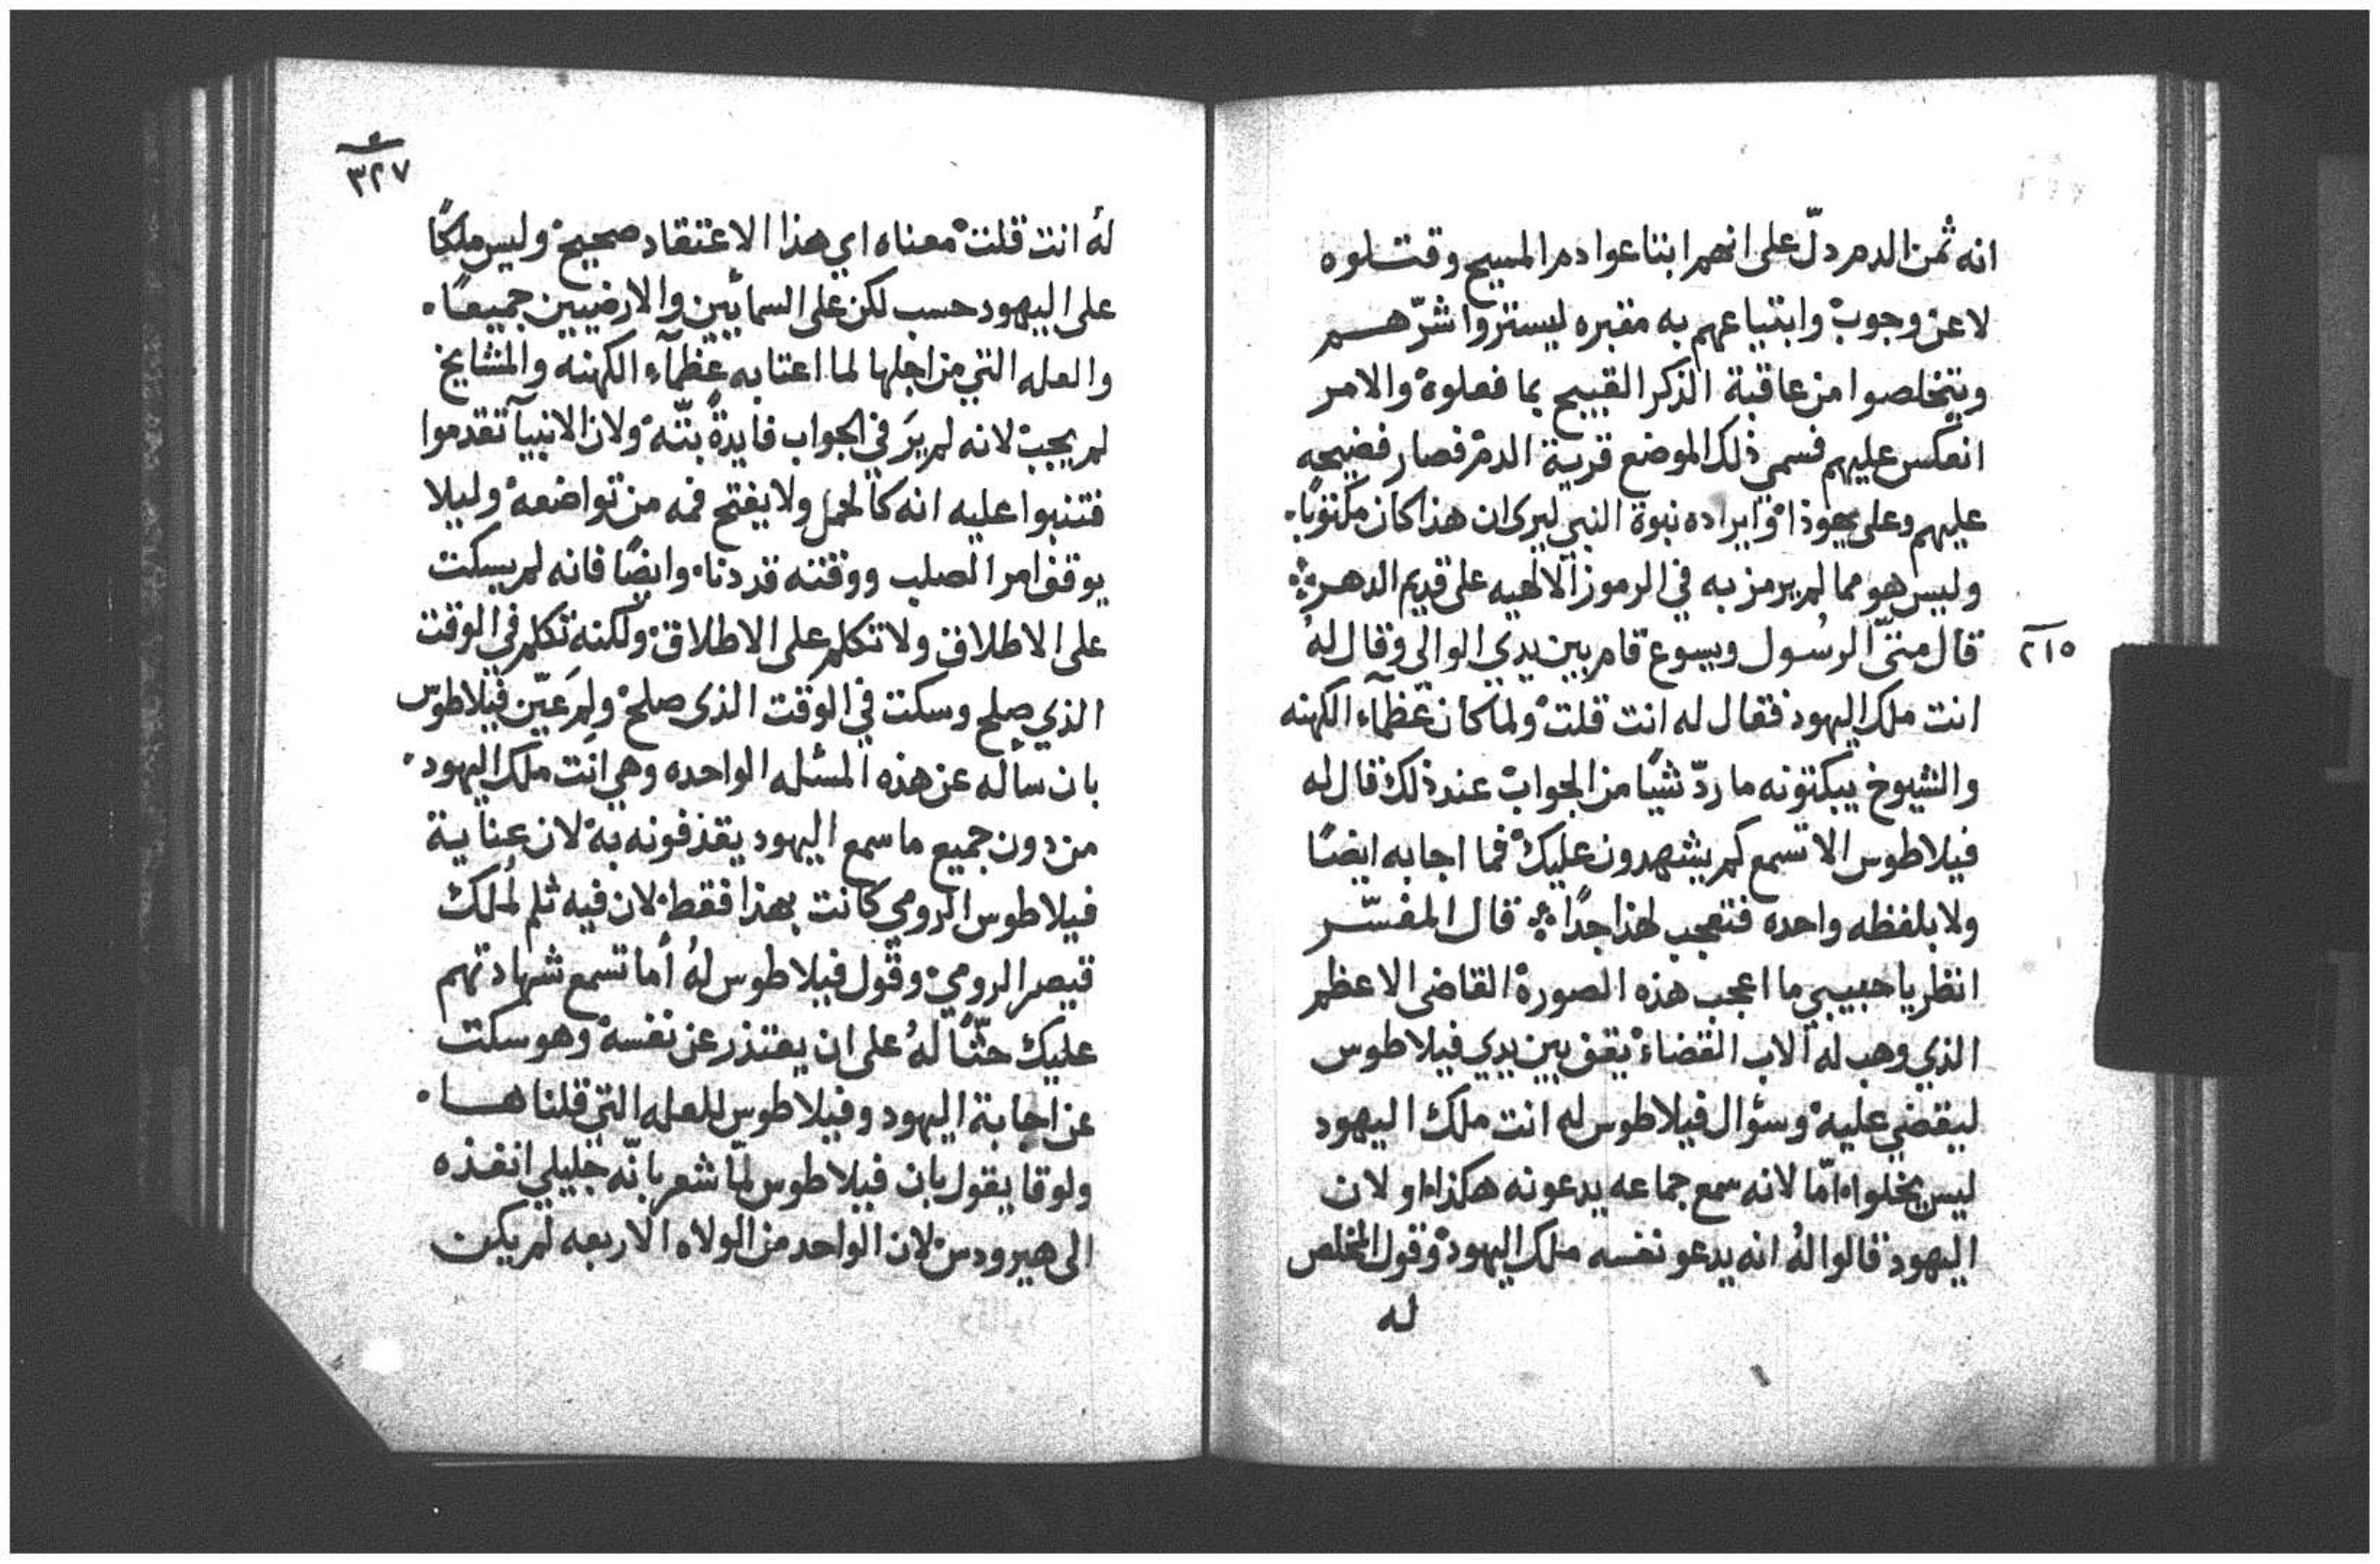 انه ثمن الدم دلّ على انهم ابتاعوا دم المسيح وقتلوه
لا عن وجوب وابتياعهم به مقبره ليستروا شرّهم
ويتخلصوا من عاقبة الذكر القبيح بما فعلوه والامر
انعكس عليهم فسمي ذلك الموضع قرية الدم فصار فضيحه
عليهم وعلى يهوذا وايراده نبوة النبي ليرى ان هذا كان مكتوبًا.
وليس هو مما لم يرمز به في الرموز الالهيه على قديم الدهر
٢١٥
قال متّى الرسول ويسوع قام بين يدي الوالي وقال له
انت ملك اليهود فقال له انت قلت ولما كان عظمآء الكهنه
والشيوخ يبكتونه ما ردّ شيًا من الجواب عند ذلك قال له
فيلاطوس الا تسمع كم يشهدون عليك فما اجابه ايضًا
ولا بلفظه واحده فتعجب لهذا جدًا قال المفسّر
انظر يا حبيبي ما اعجب هذه الصورة القاضى الاعظم
الذي وهب له الاب القضاء يقف بين يدي فيلاطوس
ليقضي عليه وسؤال فيلاطوس له انت ملك اليهود
ليس يخلوا امّا لانه سمع جماعه يدعونه هكذا او لان
اليهود قالوا لهُ انه يدعو نفسه ملك اليهود وقول المخلص
له
٣٢٧
لهُ انت قلت معناه اي هذا الاعتقاد صحيح وليس ملكًا
على اليهود حسب لكن على السمائيين والارضيين جميعًا.
والعله التي من اجلها لما اعتابه عظمآء الكهنه والمشايخ
لم يجب لانه لم يرَ في الجواب فايدةً بتّه ولان الانبيآ تقدموا
فتنبوا عليه انه كالحمل ولا يفتح فمه من تواضعه وليلا
يوقف امر الصلب ووقته قد دنا وايضًا فانه لم يسكت
على الاطلاق ولا تكلم على الاطلاق ولكنه تكلم في الوقت
الذي صلح وسكت في الوقت الذى صلح ولِمَ عيّن فيلاطوس
بان سأله عن هذه المسئله الواحده وهي انت ملك اليهود
من دون جميع ما سمع اليهود يقذفونه به لان عناية
فيلاطوس الرومي كانت بهذا فقط لان فيه ثلم لمُلك
قيصر الرومي وقول فيلاطوس لهُ أما تسمع شهادتهم
عليك حثّا لهُ على ان يعتذر عن نفسه وهو سكت
عن اجابة اليهود وفيلاطوس للعله التي قلناها.
ولوقا يقول بان فيلاطوس لمّا شعر بانّه جليلي انفذه
الى هيرودس لان الواحد من الولاه الاربعه لم يكن